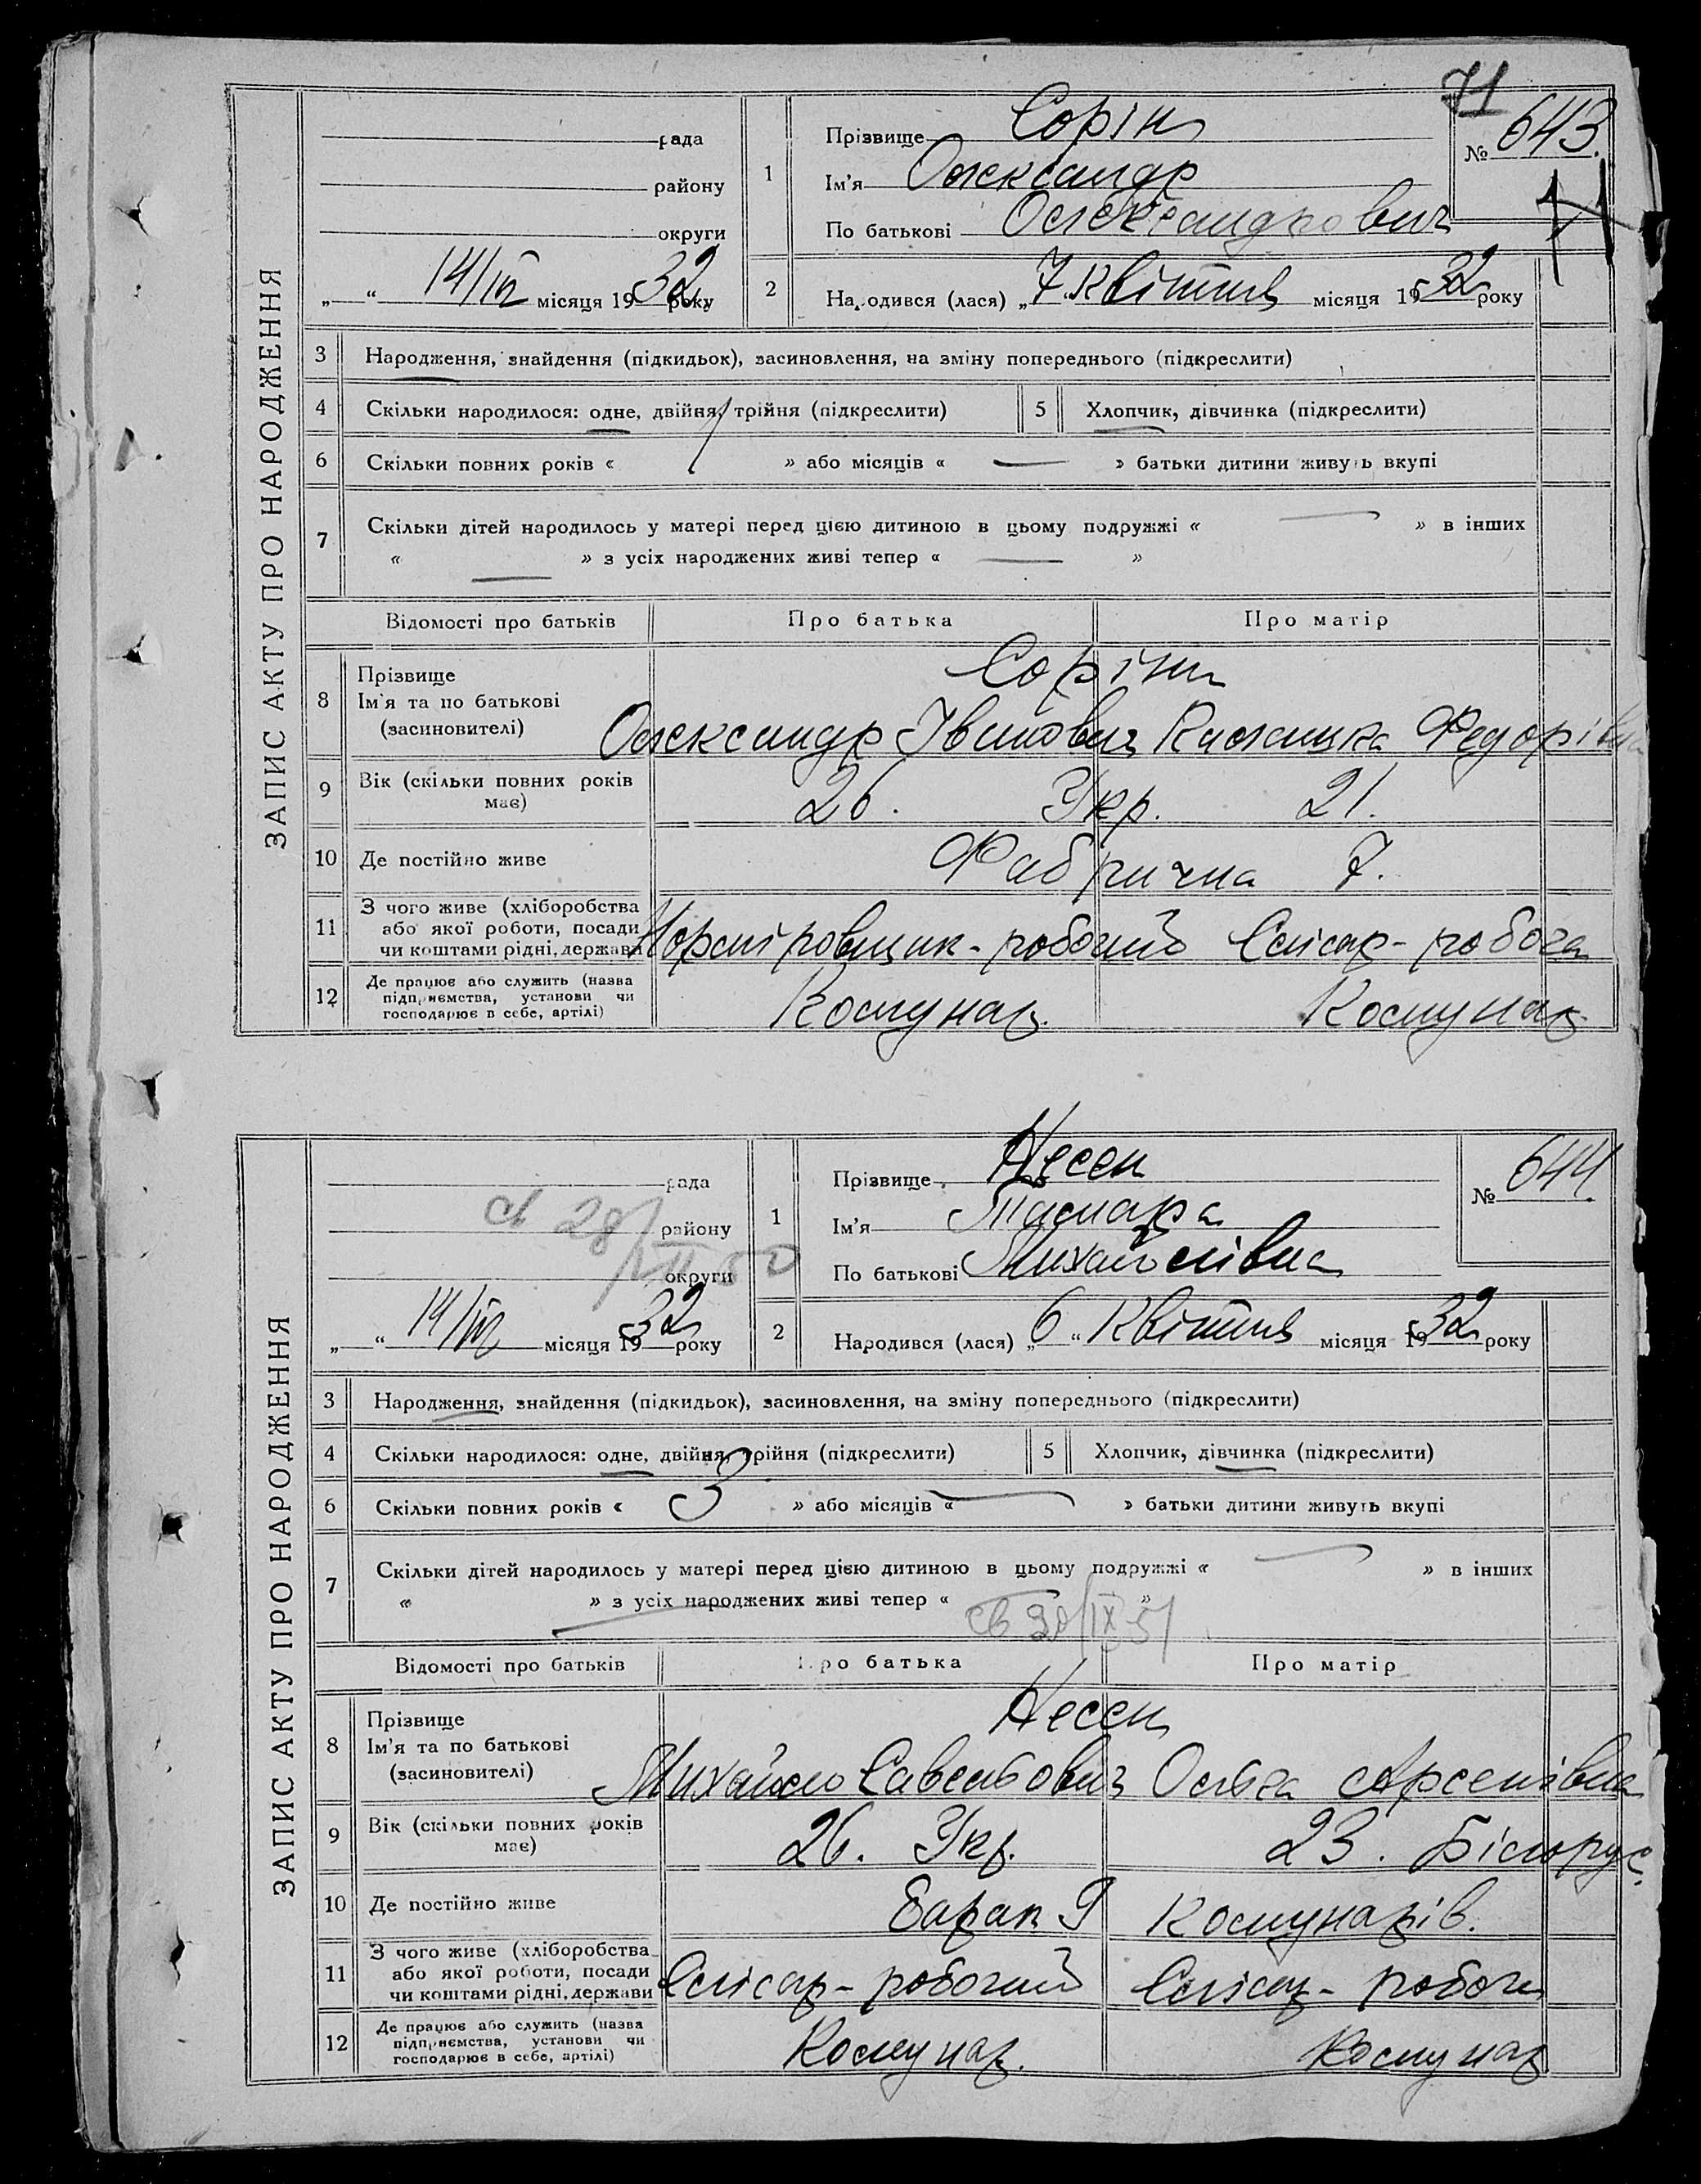 71
ЗАПИС АКТУ ПРО НАРОДЖЕННЯ
рада
району
округи
„ “ 14/IV місяця 1932 року
1
Прізвище Сорін
Ім'я Олександр
По батькові Олександрович
№ 643.
2
Народився (лася) „7“ Квітня місяця 1932 року
3 Народження, знайдення (підкидьок), засиновлення, на зміну попереднього (підкреслити)
4 Скільки народилося: одне, двійня, трійня (підкреслити) 5 Хлопчик, дівчинка (підкреслити)
6 Скільки повних років « 1 » або місяців « — » батьки дитини живуть вкупі
7 Скільки дітей народилось у матері перед цією дитиною в цьому подружжі « — » в інших
« — » з усіх народжених живі тепер « — »
Відомості про батьків Про батька Про матір
8 Прізвище
Ім'я та по батькові
(засиновителі)
Соріни
Олександр Іванович Федорівна
9 Вік (скільки повних років
має)
26. Укр. 21.
10 Де постійно живе Фабрична 7.
11 З чого живе (хліборобства
або якої роботи, посади
чи коштами рідні, держави
Норміровщик - робочий Слісар - робоча
12 Де працює або служить (назва
підприємства, установи чи
господарює в себе, артілі)
Комунар. Комунар
ЗАПИС АКТУ ПРО НАРОДЖЕННЯ
рада
району
округи
„ “ 14/IV місяця 1932 року
1
Прізвище Несен
Ім'я Тамара
По батькові Михайлівна
№ 644.
2
Народився (лася) „6“ Квітня місяця 1932 року
3 Народження, знайдення (підкидьок), засиновлення, на зміну попереднього (підкреслити)
4 Скільки народилося: одне, двійня, трійня (підкреслити) 5 Хлопчик, дівчинка (підкреслити)
6 Скільки повних років « 3 » або місяців « — » батьки дитини живуть вкупі
7 Скільки дітей народилось у матері перед цією дитиною в цьому подружжі « — » в інших
« — » з усіх народжених живі тепер « — »
св /IX 51
Відомості про батьків Про батька Про матір
8 Прізвище
Ім'я та по батькові
(засиновителі)
Несен
Михайло Савельович Ольга Арсенівна
9 Вік (скільки повних років
має)
26. Укр. 23. Білорус.
10 Де постійно живе Барак 9 Комунарів.
11 З чого живе (хліборобства
або якої роботи, посади
чи коштами рідні, держави
Слісар - робочий Слісар - робоч
12 Де працює або служить (назва
підприємства, установи чи
господарює в себе, артілі)
Комунар. Комунар